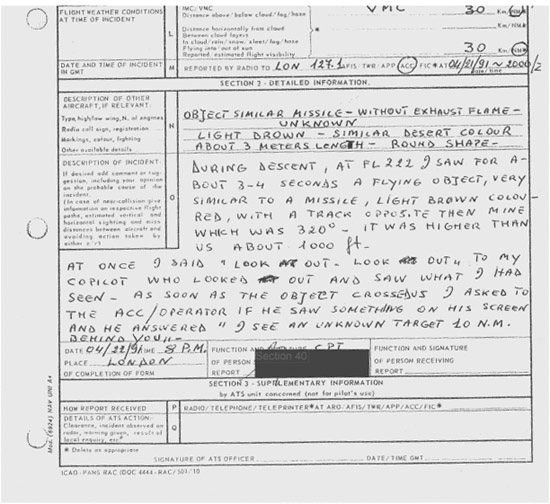 FLIGHT WEATHER CONDITIONS AT TIME OF INCIDENT
L
IMC/VMC VMC 30 Km/NM*
Distance above/below cloud/fog/haze
Distance horizontally from cloud * Km/NM*
Between cloud layers
In cloud/rain/snow, sleet/fog/haze
Flying into/out of sun 30 Km/NM*
Reported/estimated flight visibility
DATE AND TIME OF INCIDENT IN GMT
M
REPORTED BY RADIO TO LON 127.1 AFIS/TWR/APP/ACC/FIC* AT 04/21/91 ~ 2000/2
date/time
SECTION 2 - DETAILED INFORMATION.
DESCRIPTION OF OTHER AIRCRAFT, IF RELEVANT:
Type, high/low wing, N. of engines
Radio call sign, registration
Markings, colour, lighting
Other available details
N
OBJECT SIMILAR MISSILE - WITHOUT EXHAUST FLAME -
UNKNOWN
LIGHT BROWN - SIMILAR DESERT COLOUR
ABOUT 3 METERS LENGTH - ROUND SHAPE -
DESCRIPTION OF INCIDENT:
If desired add comment or sug-
gestion, including your opinion
on the probable cause of the
incident.
(In case of near-collision give
information on respective flight
paths, estimated vertical and
horizontal sighting and miss
distances between aircraft and
avoiding action taken by
either a/c)
O
DURING DESCENT, AT FL 222 I SAW FOR A-
BOUT 3-4 SECONDS A FLYING OBJECT, VERY
SIMILAR TO A MISSILE, LIGHT BROWN COLOU-
RED, WITH A TRACK OPPOSITE THEN MINE
WHICH WAS 320° - IT WAS HIGHER THAN
US ABOUT 1000 ft -
AT ONCE I SAID "LOOK OUT - LOOK OUT" TO MY
COPILOT WHO LOOKED OUT AND SAW WHAT I HAD
SEEN - AS SOON AS THE OBJECT CROSSED US I ASKED TO
THE ACC/OPERATOR IF HE SAW SOMETHING ON HIS SCREEN
AND HE ANSWERED "I SEE AN UNKNOWN TARGET 10 N.M.
BEHIND YOU" -
DATE 04/22/91 TIME 8 P.M.
PLACE LONDON
OF COMPLETION OF FORM
FUNCTION AND CPT
OF PERSON Section 40
REPORT
FUNCTION AND SIGNATURE
OF PERSON RECEIVING
REPORT
SECTION 3 - SUPPLEMENTARY INFORMATION
by ATS unit concerned (not for pilot's use)
HOW REPORT RECEIVED
P
RADIO/TELEPHONE/TELEPRINTER* AT ARO/AFIS/TWR/APP/ACC/FIC*
DETAILS OF ATS ACTION:
Clearance, incident observed on
radar, warning given, result of
local enquiry, etc.
Q
* Delete as appropriate
SIGNATURE OF ATS OFFICER DATE/TIME GMT
ICAO - PANS RAC (DOC 4444 - RAC/501/10